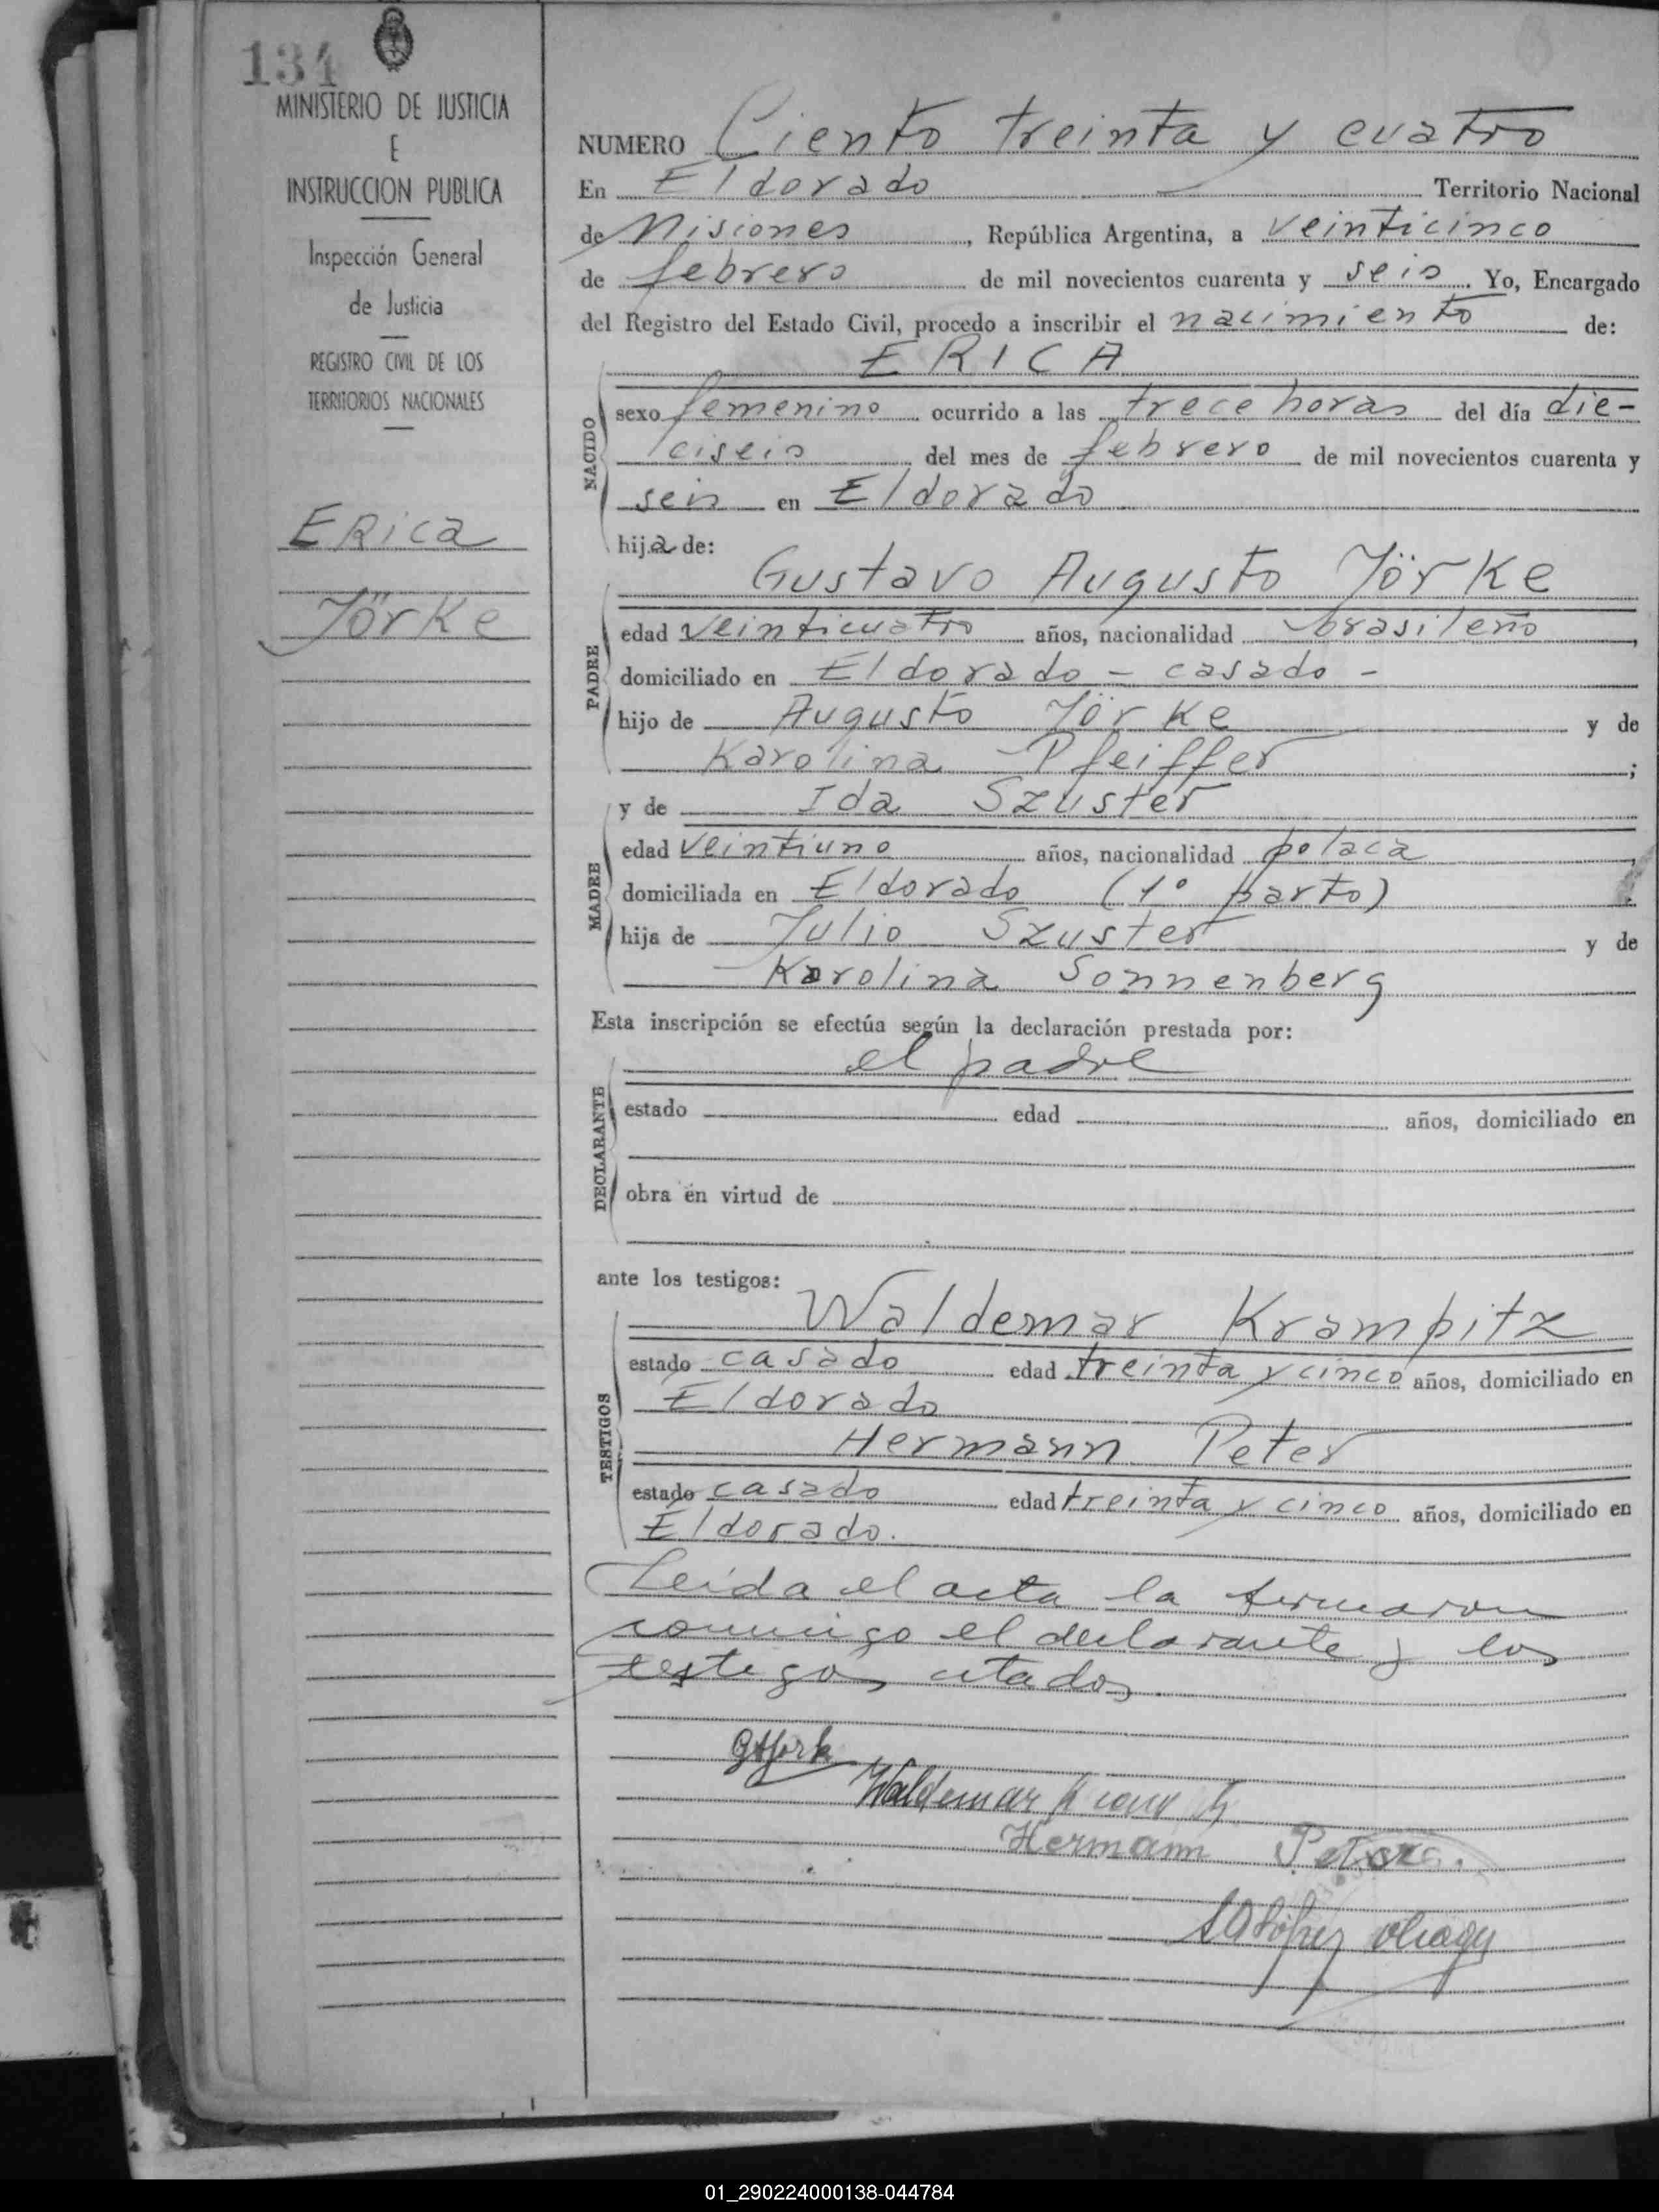 134
MINISTERIO DE JUSTICIA
E
INSTRUCCION PUBLICA
Inspección General
de Justicia
REGISTRO CIVIL DE LOS
TERRITORIOS NACIONALES
Erica
Jörke
NUMERO Ciento treinta y cuatro
En Eldorado Territorio Nacional
de Misiones, República Argentina, a veinticinco
de febrero de mil novecientos cuarenta y seis. Yo, Encargado
del Registro del Estado Civil, procedo a inscribir el nacimiento de:
ERICA
NACIDO
sexo femenino ocurrido a las trece horas del día die-
ciseis del mes de febrero de mil novecientos cuarenta y
seis en Eldorado
hija de:
Gustavo Augusto Jörke
PADRE
edad veinticuatro años, nacionalidad brasileño,
domiciliado en Eldorado - casado -
hijo de Augusto Jörke y de
Karolina Pfeiffer;
y de Ida Szuster
MADRE
edad veintiuno años, nacionalidad polaca,
domiciliada en Eldorado (1º parto)
hija de Julio Szuster y de
Karolina Sonnenberg
Esta inscripción se efectúa según la declaración prestada por:
el padre
DECLARANTE
estado edad años, domiciliado en
obra en virtud de
ante los testigos:
Waldemar Krampitz
TESTIGOS
estado casado edad treinta y cinco años, domiciliado en
Eldorado
Hermann Peter
estado casado edad treinta y cinco años, domiciliado en
Eldorado.
Leída el acta la firmaron
conmigo el declarante y los
testigos citados
Waldemar
Hermann Peter.
01_290224000138-044784